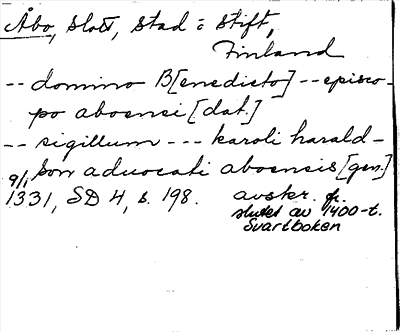 Åbo, slott, stad o stift,
Finland
-- domino B[enedicto] -- episco-
po aboensi [dat.]
-- sigillum --- karoli harald-
son aduocati aboensis [gen.]
9/1 1331, SD 4, s. 198. avskr. fr.
slutet av 1400-t.
Svartboken